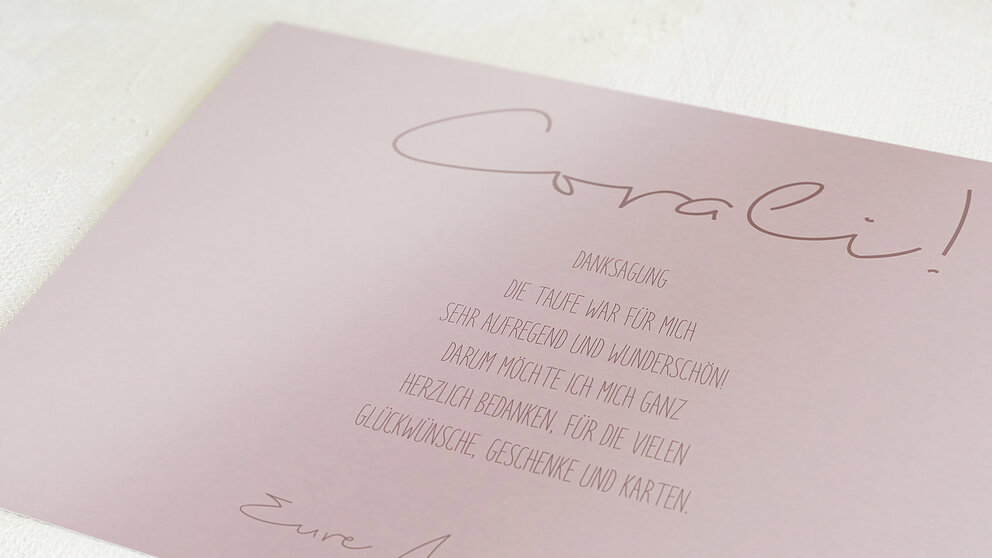 Corali!
DANKSAGUNG
DIE TAUFE WAR FÜR MICH
SEHR AUFREGEND UND WUNDERSCHÖN!
DARUM MÖCHTE ICH MICH GANZ
HERZLICH BEDANKEN, FÜR DIE VIELEN
GLÜCKWÜNSCHE, GESCHENKE UND KARTEN.
Eure